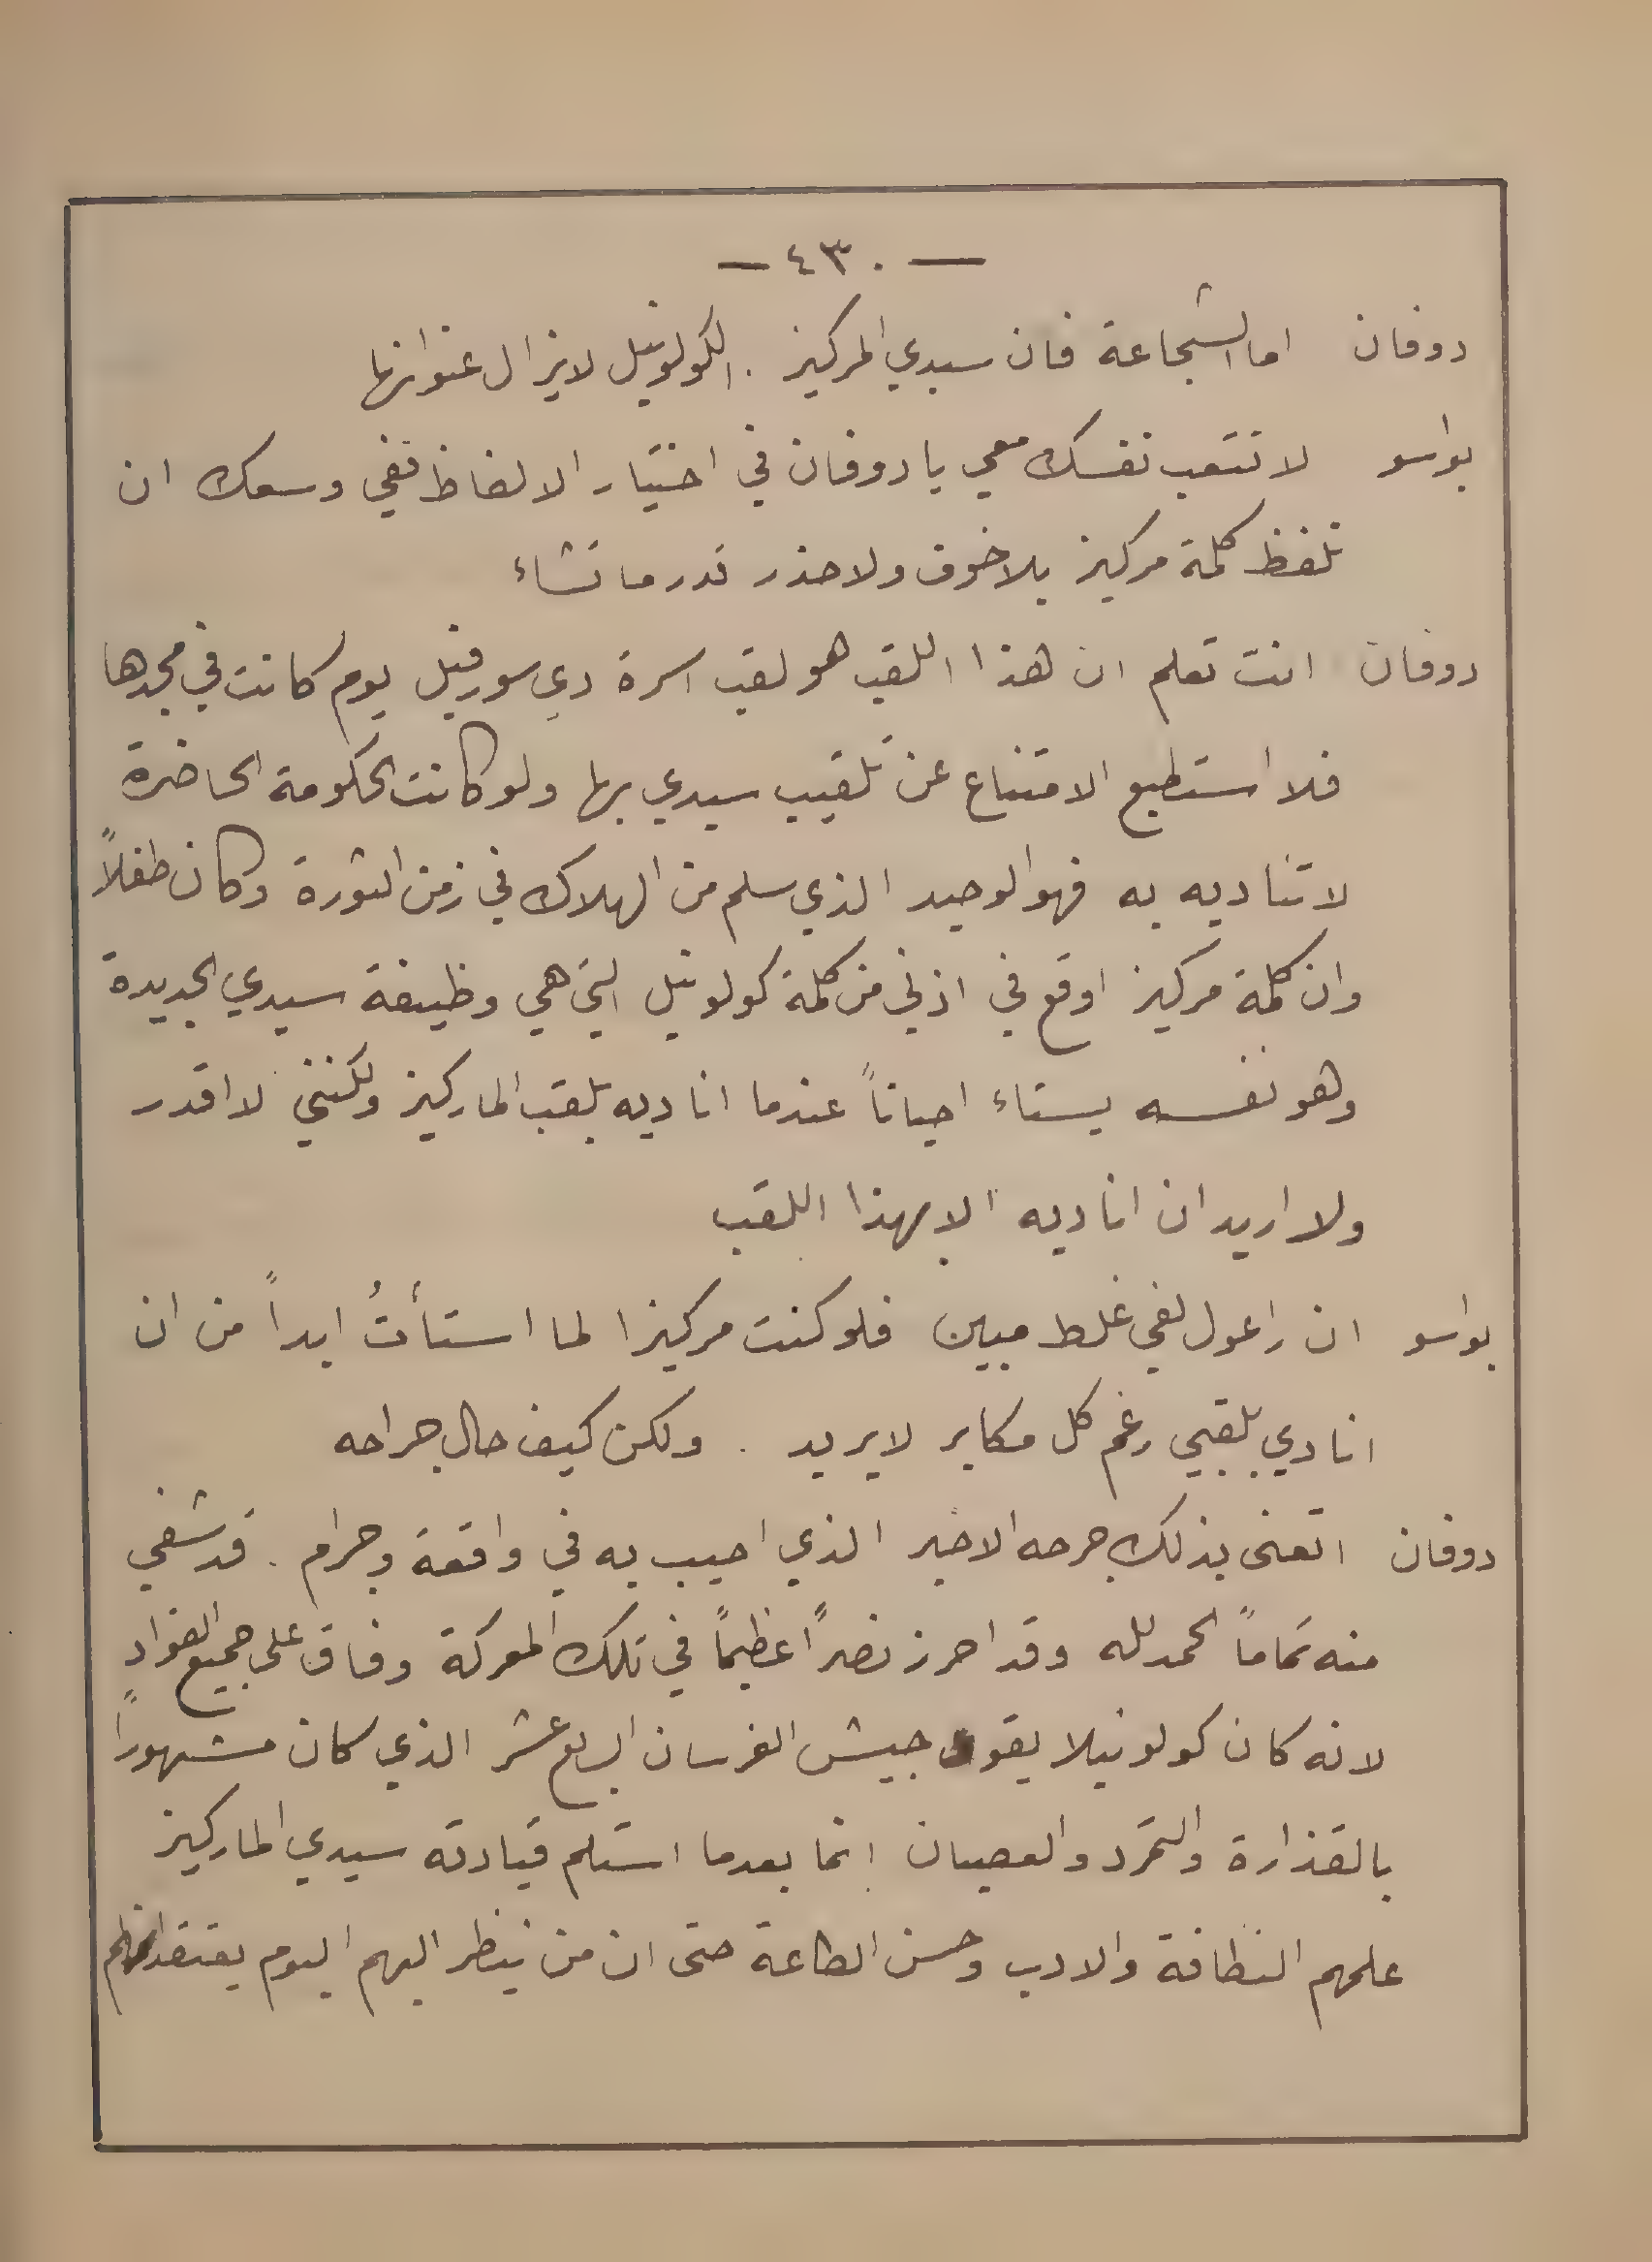 — ٤٣٠ —
دوفان اما الشجاعة فان سيدي المركيز . الكولونيل لايزال عنوانها
بواسو لا تتعب نفسك معي يا دوفان في اختيار الالفاظ ففي وسعك ان
تلفظ كلمة مركيز بلا خوف ولا حذر قدر ما تشاء
دوفان انت تعلم ان هذا اللقب هو لقب اسرة دي سورفيل يوم كانت في مجدها
فلا استطيع الامتناع عن تلقيب سيدي بها ولو كانت الحكومة الحاضرة
لا تناديه به فهو الوحيد الذي سلم من الهلاك في زمن الثورة وكان طفلاً
وان كلمة مركيز اوقع في اذني من كلمة كولونيل التي هي وظيفة سيدي الجديدة
وهو نفسه يستاء احياناً عندما اناديه بلقب الماركيز ولكنني لا اقدر
ولا اريد ان اناديه الا بهذا اللقب
بواسو ان راعول لفي غلط مبين فلو كنت مركيزا لما استأتُ ابداً من ان
انادي بلقبي رغم كل مكابر لا يريد . ولكن كيف حال جراحه
دوفان اتعنى بذلك جرحه الاخير الذي اصيب به في واقعة وجرام . قد شفي
منه تماماً الحمد لله وقد احرز نصراً عظيماً في تلك المعركة وفاق على جميع القواد
لانه كان كولونيلا يقود جيش الفرسان السابع عشر الذي كان مشهوراً
بالقذارة والتمرد والعصيان انما بعدما استلم قيادته سيدي الماركيز
علمهم النظافة والادب وحسن الطاعة حتى ان من ينظر اليهم اليوم يعتقد انهم